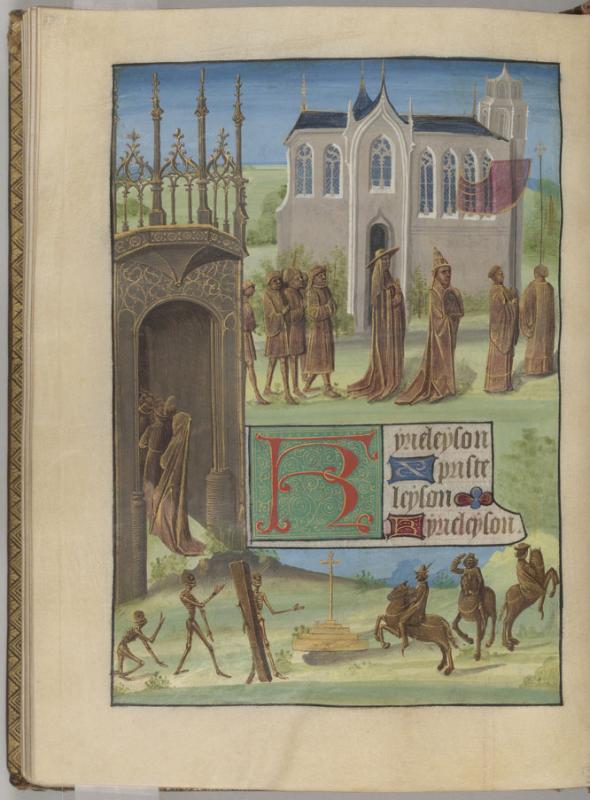 Kyrieleyson
Xpriste
leyson
Kyrieleyson.